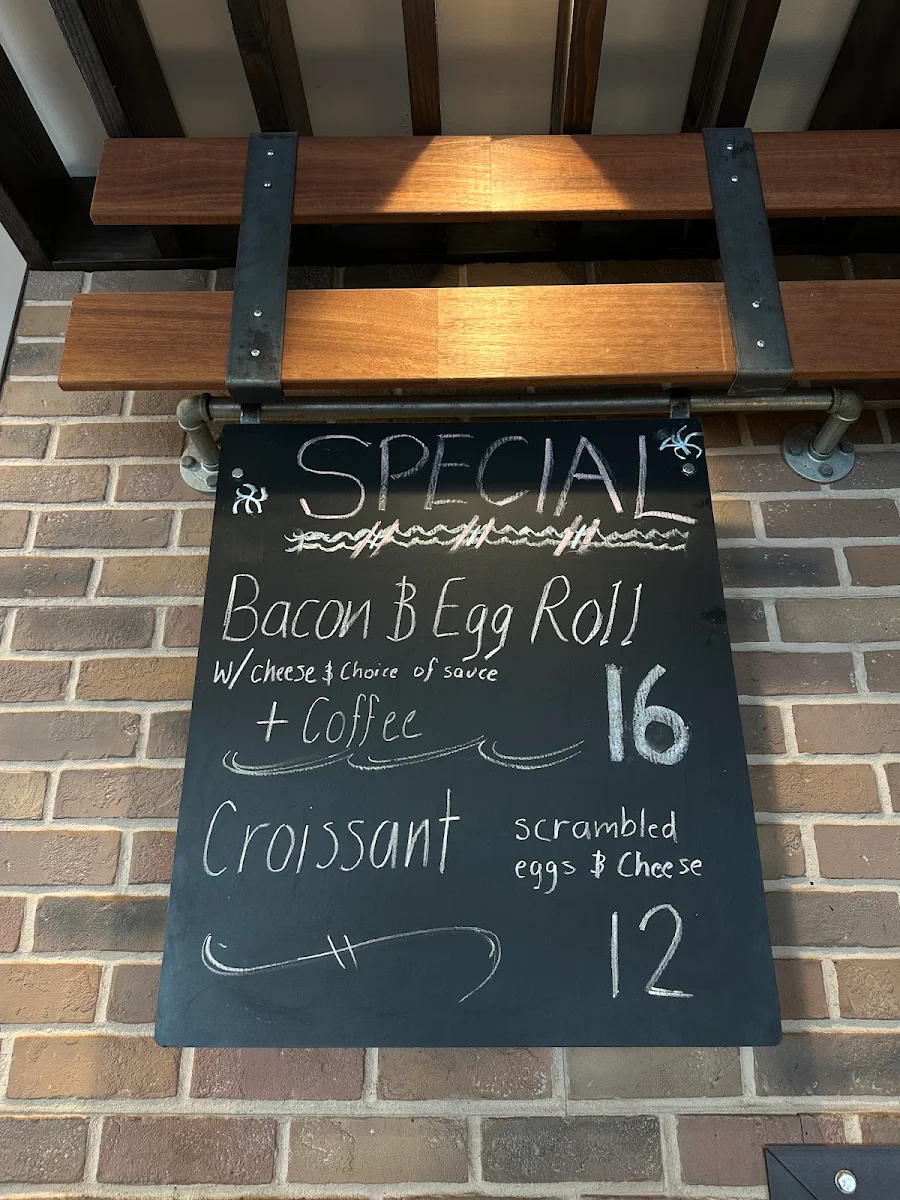 SPECIAL
Bacon & Egg Roll
W/ Cheese & Choice of sauce
+ Coffee
16
Croissant
scrambled
eggs & Cheese
12